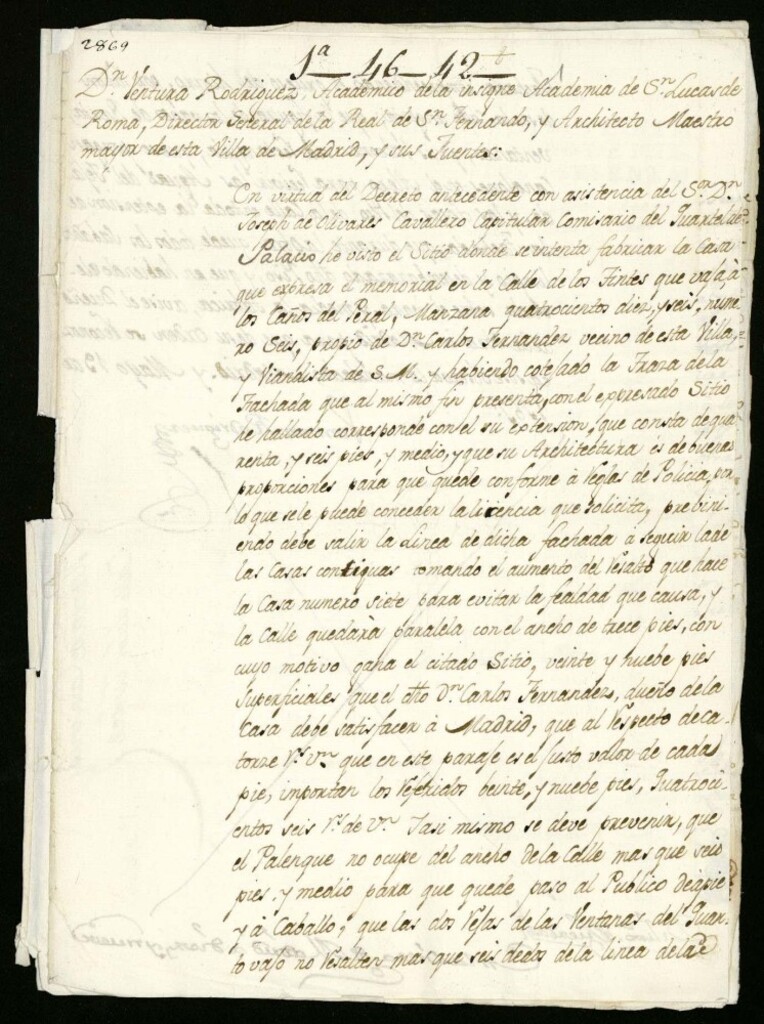 2869
1ª — 46 — 42 —
Dn. Ventura Rodriguez Academico dela insigne Academia de Sn. Lucas de
Roma, Director General de la Real de Sn. Fernando, y Architecto Maestro
mayor de esta Villa de Madrid, y sus Fuentes:
En virtud del Decreto antecedente con asistencia del Sor. Dn.
Joseph de Olivares Cavallero Capitular Comisario del Quartel de
Palacio he visto el Sitio donde se intenta fabricar la Casa
que expresa el memorial en la Calle de los Tintes que vaja, à
los Caños del Peral, Manzana quatrocientos diez, y seis, nume-
ro Seis, propio de Dn. Carlos Fernandez vecino de esta Villa,
y Viandista de S. M. y habiendo cotejado la Traza de la
Fachada que al mismo fin presenta, con el expresado Sitio
he hallado corresponde con el su extension, que consta de qua-
renta, y seis pies, y medio, y que su Architectura es de buenas
proporciones para que quede conforme à Reglas de Policia, por
lo que sele puede conceder la licencia que solicita, prebini-
endo debe salir la Linea de dicha fachada a seguir la de
las Casas contiguas tomando el aumento del Resalto que hace
la Casa numero siete para evitar la fealdad que causa, y
la Calle quedarà paralela con el ancho de trece pies, con
cuyo motivo gana el citado Sitio, veinte y nuebe pies
Superficiales que el dho Dn. Carlos Fernandez, dueño de la
Casa debe satisfacer à Madrid, que al Respecto de ca-
torze Rs. Vn. que en este paraje es el justo valor de cada
pie, importan los Referidos beinte, y nuebe pies, Quatroci-
entos seis Rs. de Vn. Y asi mismo se deve prevenir, que
el Palenque no ocupe del ancho de la Calle mas que seis
pies, y medio para que quede paso al Publico de à pie
y à Caballo; que las dos Rejas de las Ventanas del Quar-
to vajo no Resalten mas que seis dedos de la linea de la